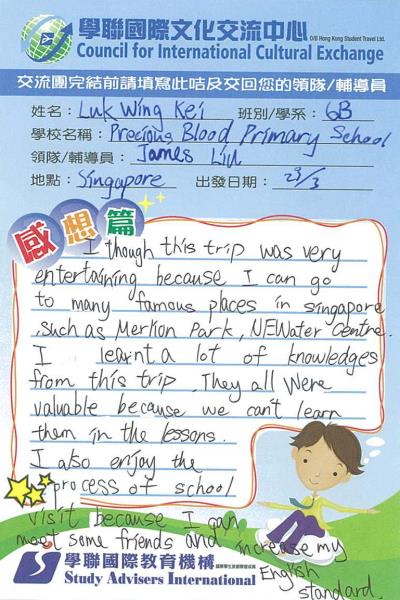 學聯國際文化交流中心 O/B Hong Kong Student Travel Ltd.
Council for International Cultural Exchange
交流團完結前請填寫此咭及交回您的領隊/輔導員
姓名：Luk Wing Kei 班別/學系：6B
學校名稱：Precious Blood Primary School
領隊/輔導員：James Liu
地點：Singapore 出發日期：29/3
感想篇
I though this trip was very
entertaining because I can go
to many famous places in singapore
,such as Merlion Park, NEWater Centre.
I learnt a lot of knowledges
from this trip. They all were
valuable because we can't learn
them in the lessons.
I also enjoy the
process of school
visit because I can
meet some friends and increase my
English
standard.
學聯國際教育機構
Study Advisers International